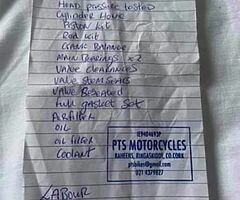 Head pressure tested
Cylinder Hone
Piston kit
Rod kit
Crank Balance
Main Bearings x 2
Valve clearances
Valve stem seals
Valve Reseated
Full gasket set
Air filter
oil
oil filter
Coolant
IE9404693P
PTS MOTORCYCLES
RAHEENS, RINGASKIDDY, CO.CORK
ptsbikes@gmail.com
021 4379827
LABOUR